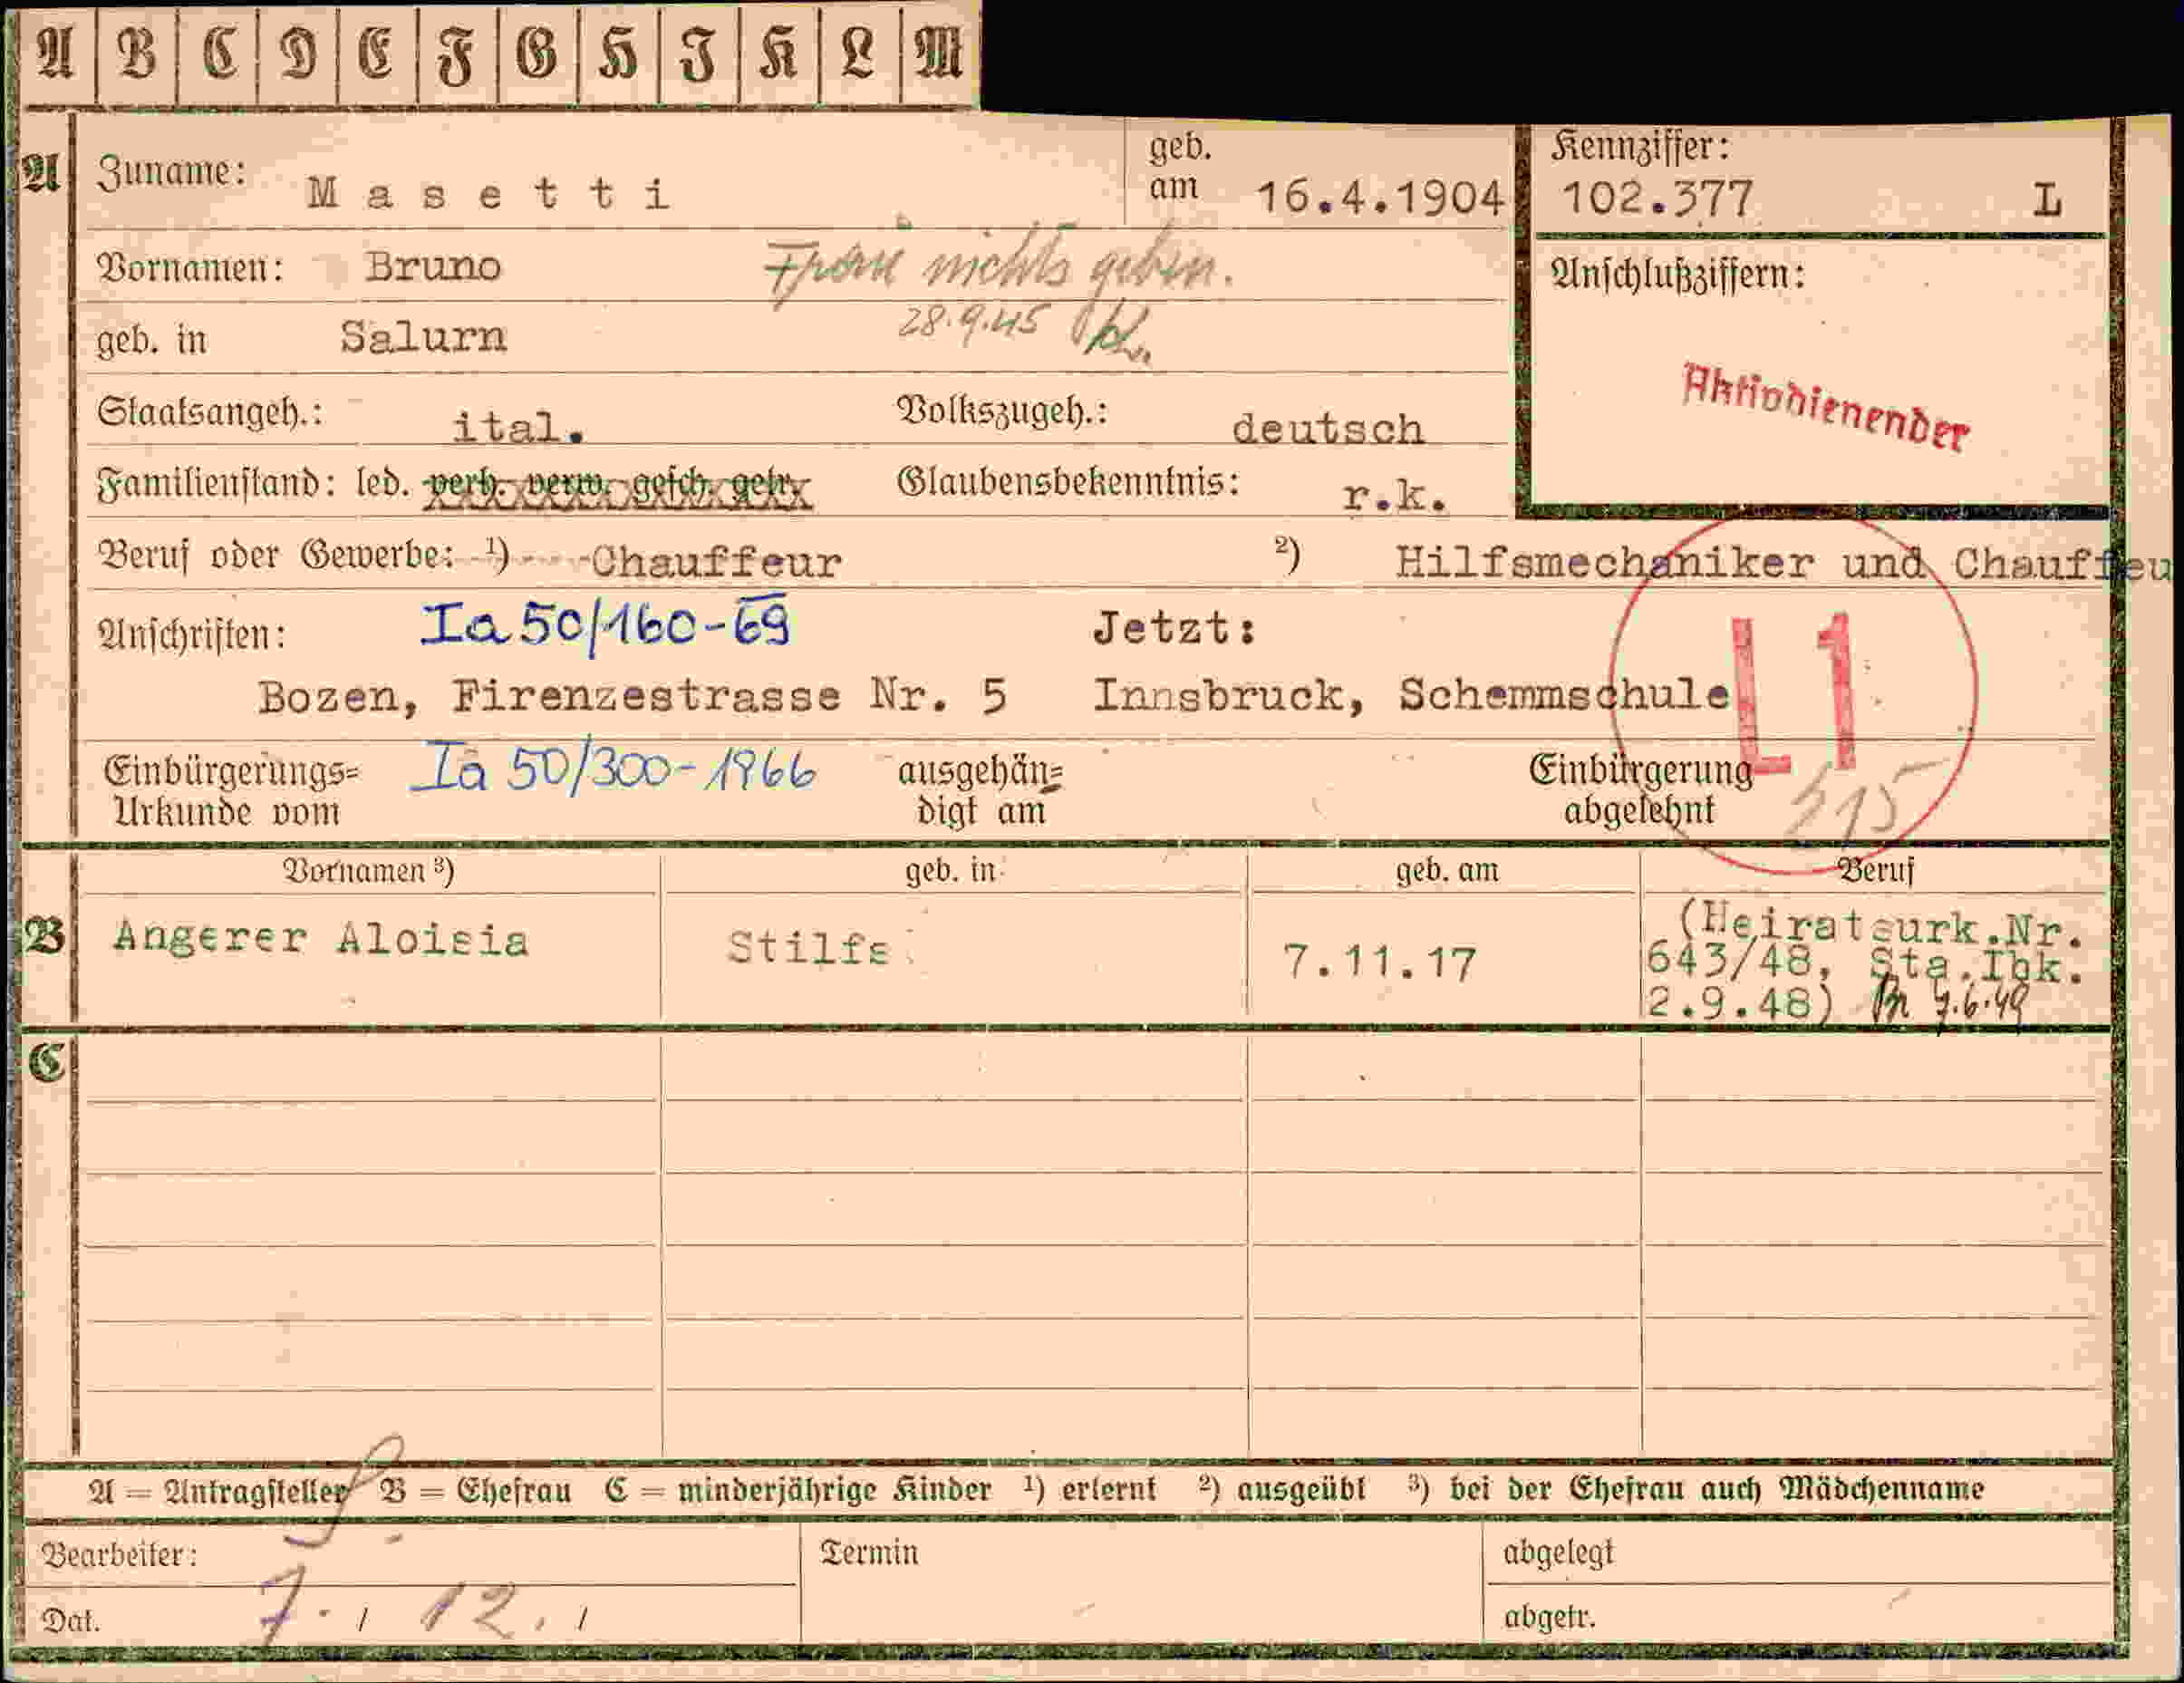 A B C D E F G H J K L M
A Zuname: Masetti geb. am 16.4.1904 Kennziffer: 102.377 L
Vornamen: Bruno Frau nichts geben. Anschlußziffern:
geb. in Salurn 28.9.45
Aktivdienender
Staatsangeh.: ital. Volkszugeh.: deutsch
Familienstand: led. verh. verw. gesch. getr. Glaubensbekenntnis: r.k.
Beruf oder Gewerbe: 1) Chauffeur 2) Hilfsmechaniker und Chauffeu
Anschriften: Ia 50/160-69 Jetzt:
Bozen, Firenzestrasse Nr. 5 Innsbruck, Schemmschule
L1
Einbürgerungs= Ia 50/300-1966 ausgehän= Einbürgerung
Urkunde vom digt am abgelehnt 515
Vornamen 3) geb. in geb. am Beruf
B Angerer Aloisia Stilfs 7.11.17 (Heiratsurk.Nr.
643/48, Sta.Ibk.
2.9.48) 9.6.49
C
A = Antragsteller B = Ehefrau C = minderjährige Kinder 1) erlernt 2) ausgeübt 3) bei der Ehefrau auch Mädchenname
Bearbeiter: Termin abgelegt
Dat. 7. / 12. / abgetr.